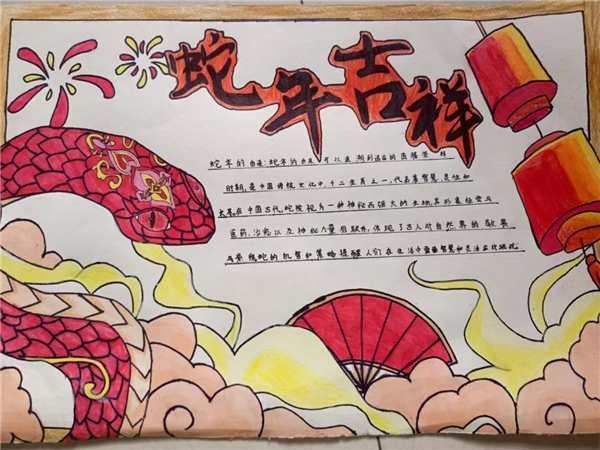 蛇年吉祥
蛇年的由来:蛇年的由来,可以追溯到远古的图腾崇拜
时期,是中国传统文化中,十二生肖之一,代表着智慧灵性和
在中国古代蛇被视为一种神秘而强大的生物,其形象经常与
医药、治愈以及神秘力量相联系,体现了古人对自然界的敬畏
蛇的机智和策略提醒人们在生活中智慧和灵活应对挑战